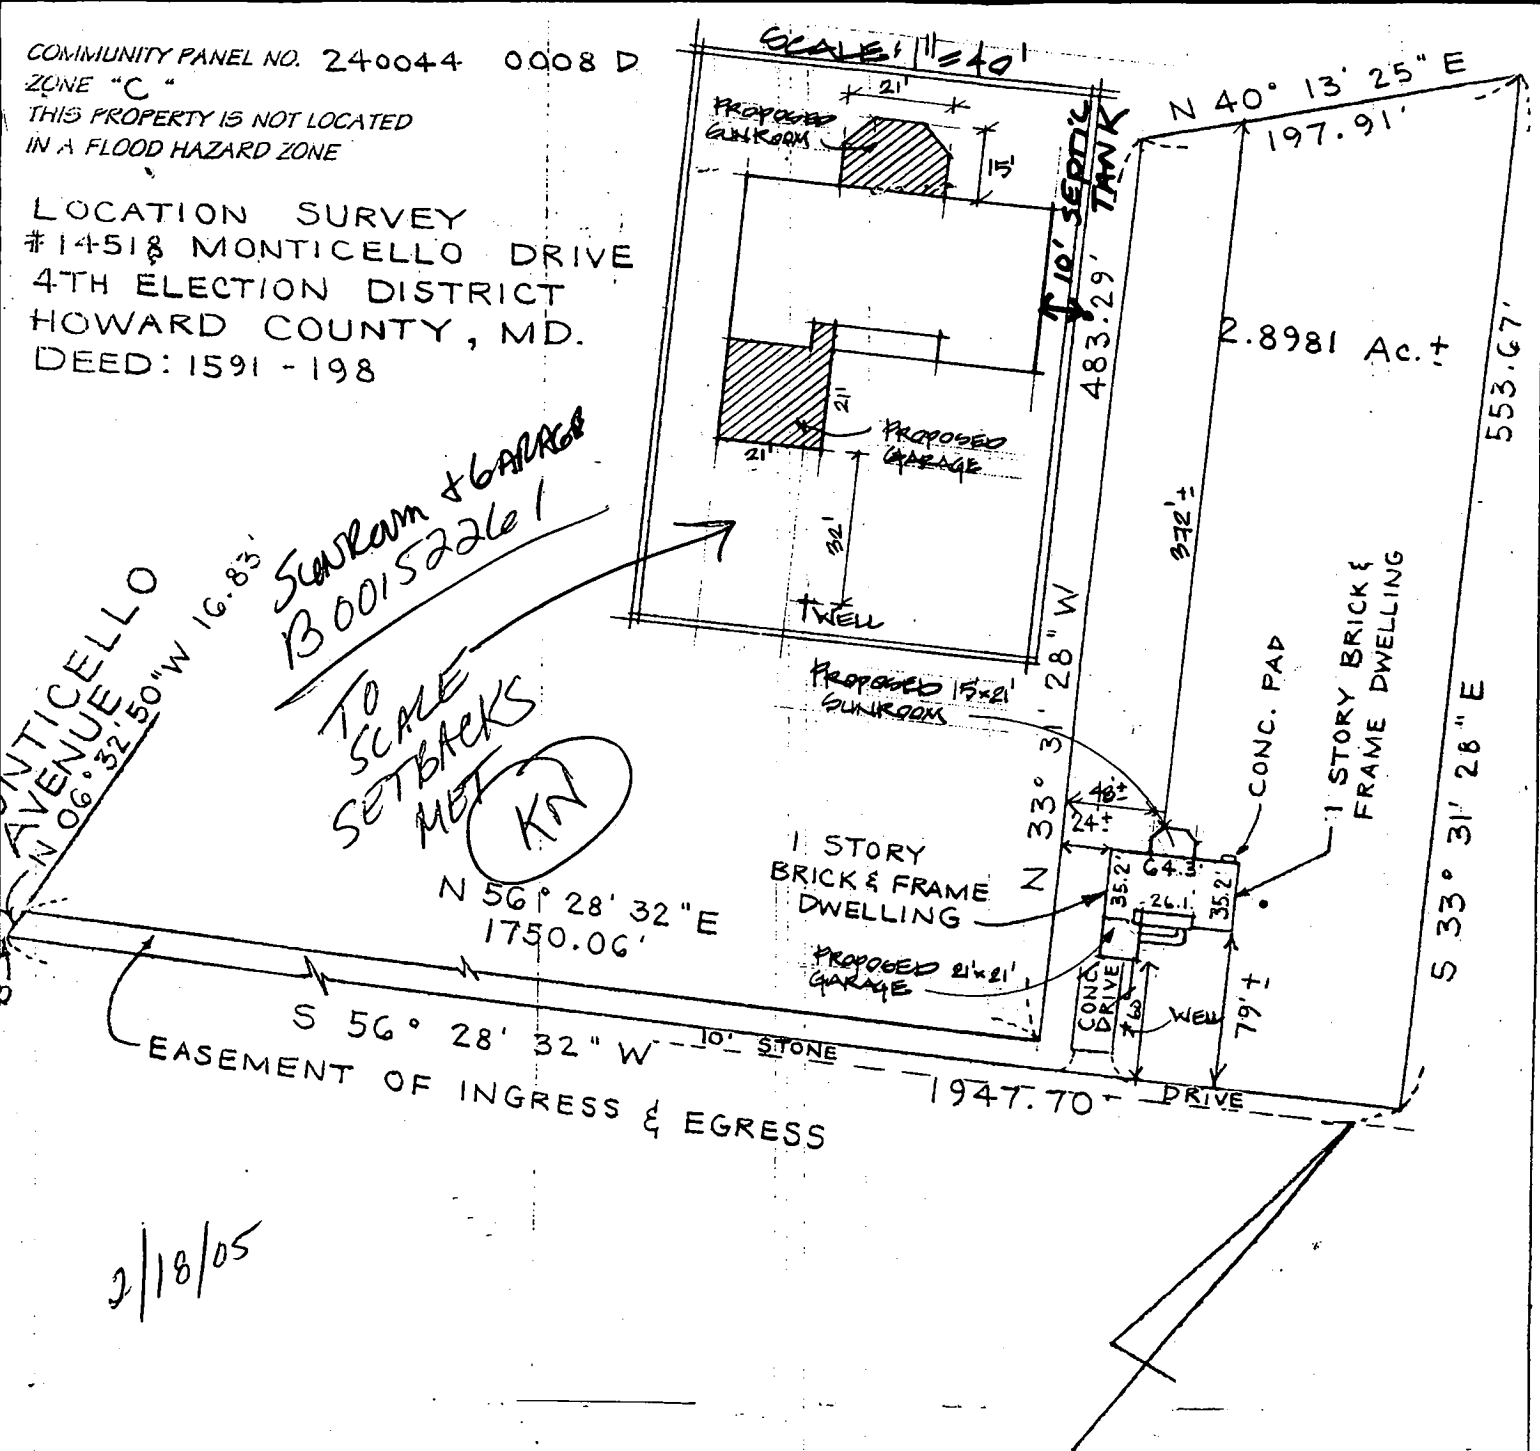 COMMUNITY PANEL NO. 240044 0008 D
ZONE "C"
THIS PROPERTY IS NOT LOCATED
IN A FLOOD HAZARD ZONE
LOCATION SURVEY
#14518 MONTICELLO DRIVE
4TH ELECTION DISTRICT
HOWARD COUNTY, MD.
DEED: 1591 - 198
SCALE: 1"=40'
21'
PROPOSED
SUNROOM
15'
10' SEPTIC
TANK
21'
21'
PROPOSED
GARAGE
32'
WELL
N 40° 13' 25" E
197.91'
483.29'
2.8981 Ac. ±
553.67'
372'±
SUNROOM & GARAGE
B00152261
TO
SCALE
SETBACKS
MET
KN
MONTICELLO
AVENUE
N 06° 32' 50" W 16.83'
PROPOSED 15'x21'
SUNROOM
N 33° 31' 28" W
48'±
24'±
CONC. PAD
1 STORY BRICK &
FRAME DWELLING
S 33° 31' 28" E
1 STORY
BRICK & FRAME
DWELLING
64.3'
35.2'
26.1
35.2'
PROPOSED 21'x21'
GARAGE
CONC.
DRIVE
WELL
79'±
N 56° 28' 32" E
1750.06'
S 56° 28' 32" W
10' STONE
1947.70
DRIVE
EASEMENT OF INGRESS & EGRESS
2/18/05